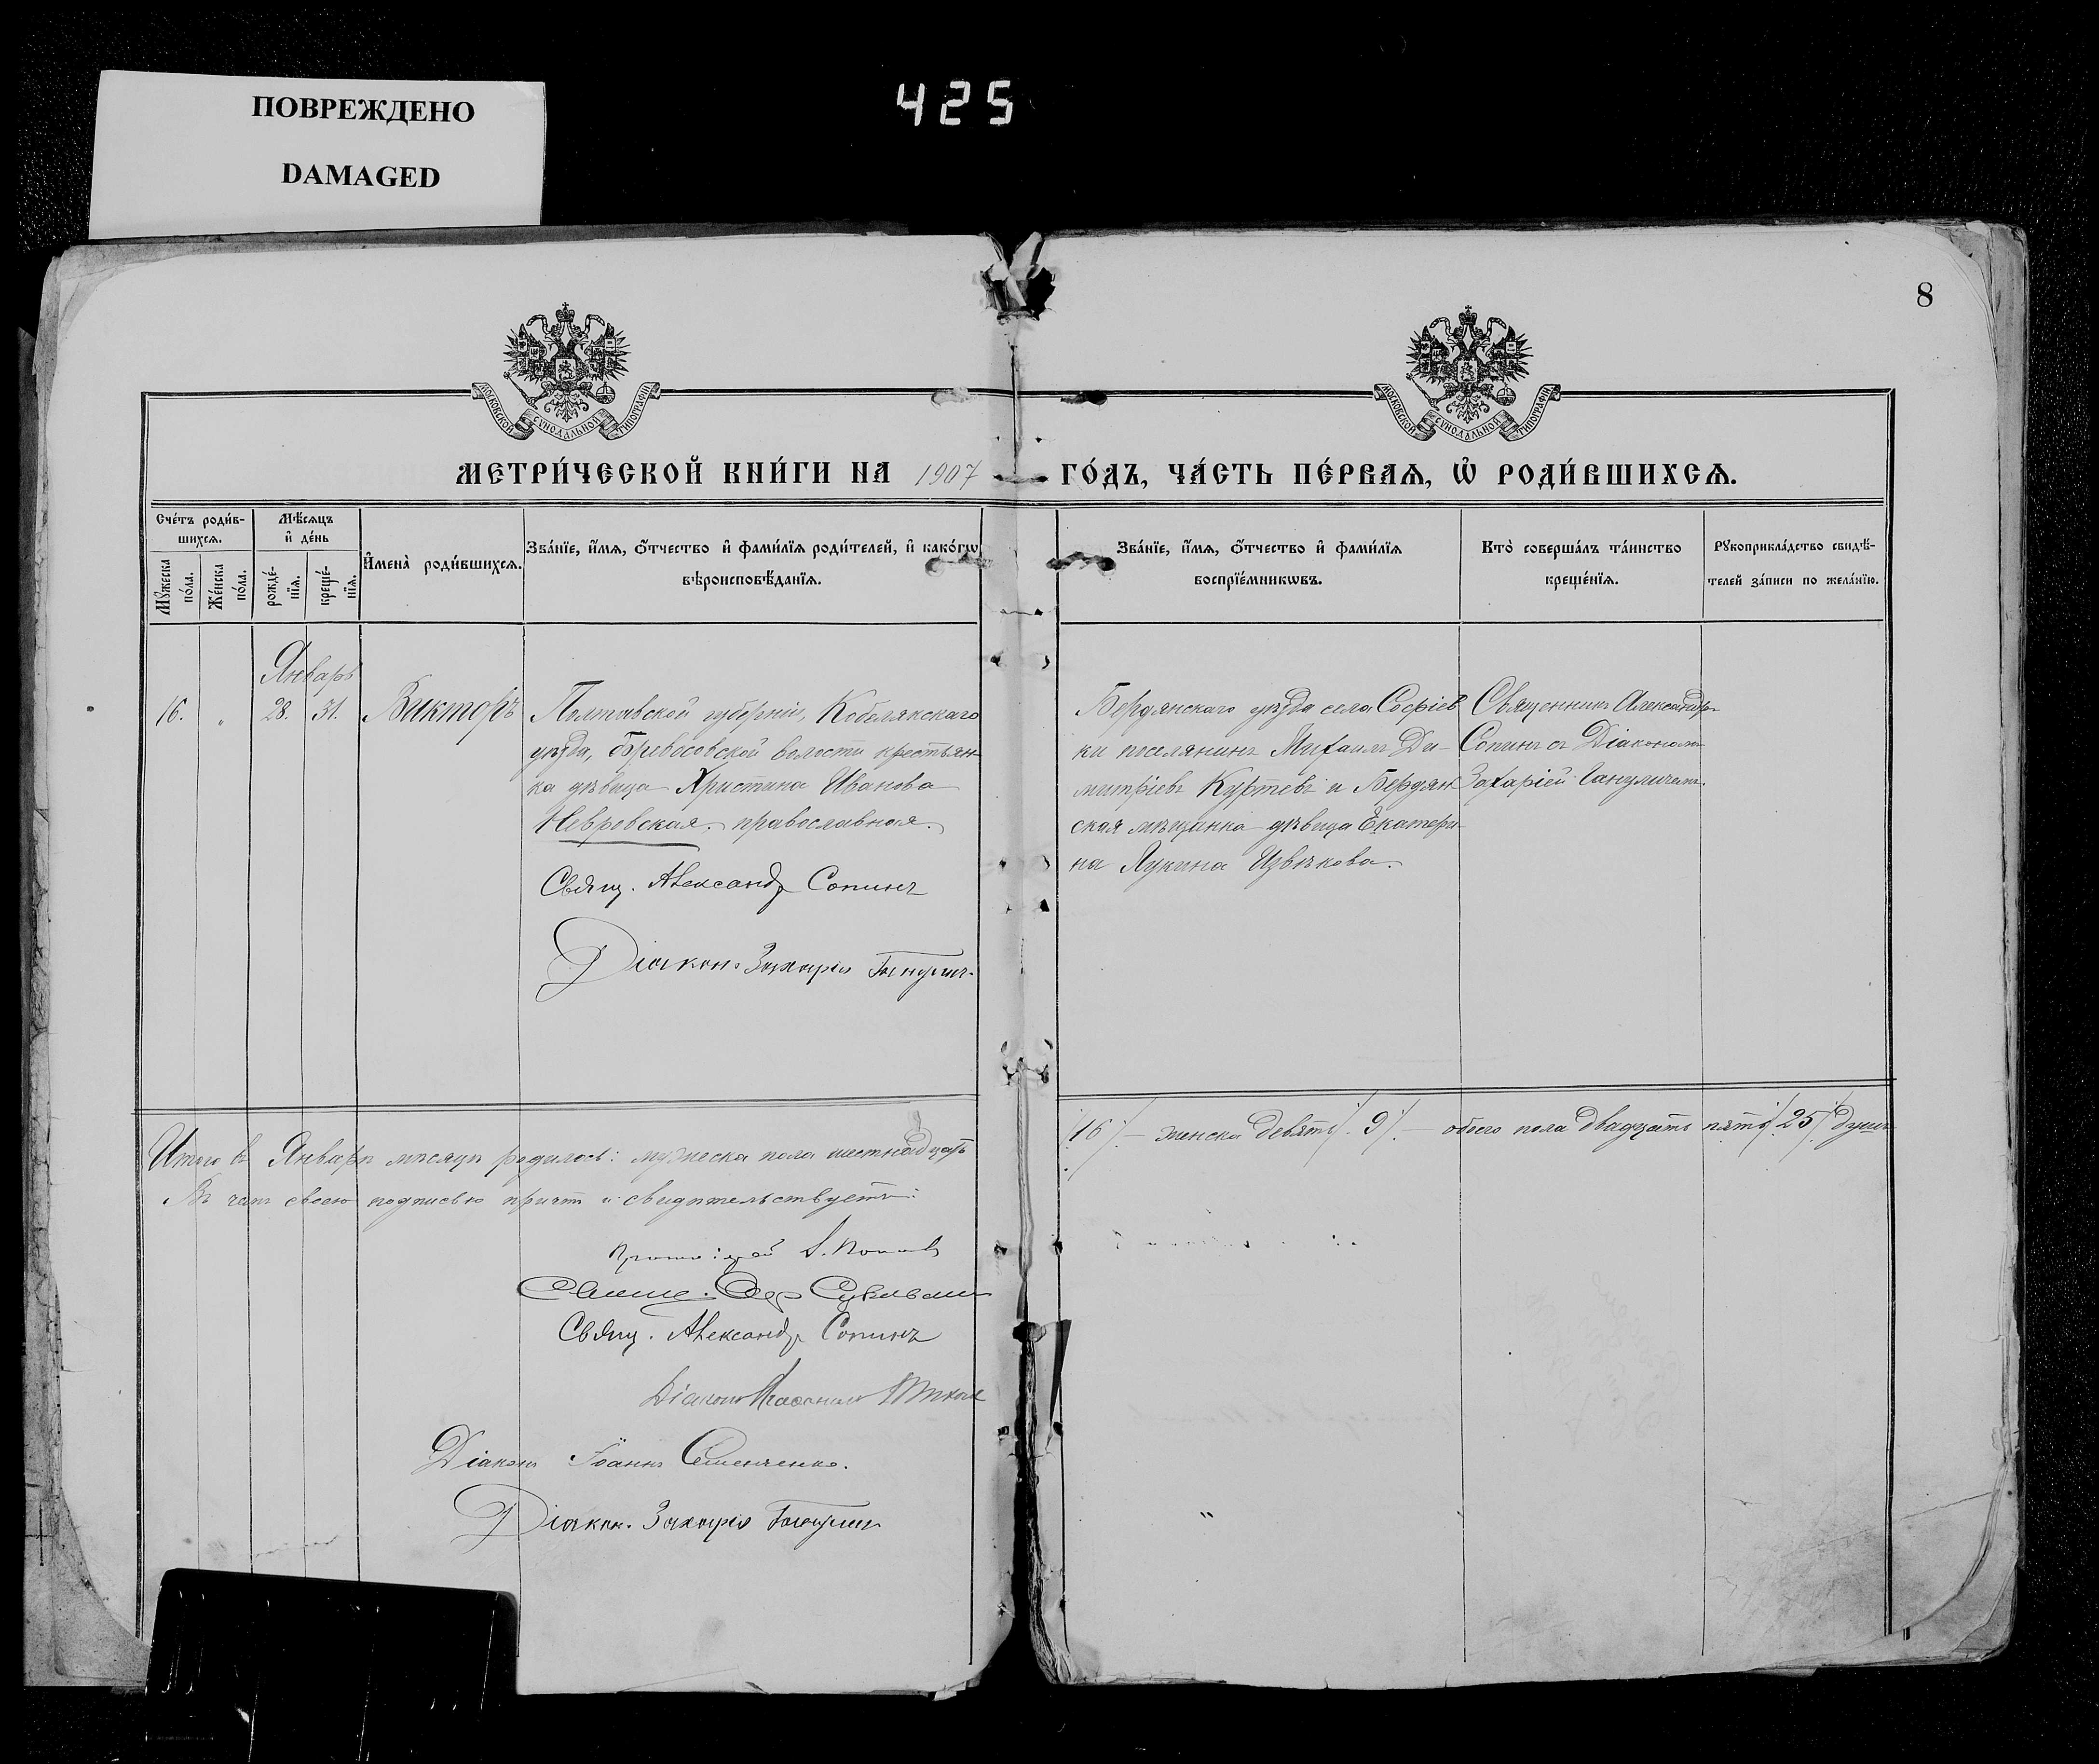 ПОВРЕЖДЕНО
DAMAGED
425
8
МОСКОВСКОЙ СѴНОДАЛЬНОЙ ТИПОГРАФІИ
МОСКОВСКОЙ СѴНОДАЛЬНОЙ ТИПОГРАФІИ
МЕТРИ́ЧЕСКОЙ КНИ́ГИ НА 1907 ГО́ДЪ, ЧА́СТЬ ПЕ́РВАѦ, Ѡ҆ РОДИ́ВШИХСѦ.
Сче́тъ роди́в-
шихсѧ.
Мꙋ́жеска по́ла.
Же́нска по́ла.
Мѣ́сѧцъ
и҆ де́нь
рожде́-нїѧ.
креще́-нїѧ.
И҆мена̀ роди́вшихсѧ.
Зва́нїе, и҆́мѧ, ѻ҆́тчество и҆ фами́лїѧ роди́телей, и҆ како́гѡ
вѣроисповѣ́данїѧ.
Зва́нїе, и҆́мѧ, ѻ҆́тчество и҆ фами́лїѧ
воспрїе́мникѡвъ.
Кто̀ соверша́лъ та́инство
креще́нїѧ.
Рꙋкоприкла́дство свидѣ́-
телей за́писи по жела́нїю.
Январь
16. " 28. 31. Викторъ
Полтавской губерніи, Кобелякскаго
уѣзда, Бреусовской волости крестьян-
ка дѣвица Христина Иванова
Невровская, православная.
Свящ. Александръ Сопинъ
Діаконъ Захарія Ганулич
Бердянскаго уѣзда села Софіев
ки поселянинъ Михаилъ Ди-
митріевъ Куртевъ и Бердян
ская мѣщанка дѣвица Екатери-
на Лукина Извѣкова.
Священникъ Александръ
Сопинъ съ Діакономъ
Захаріей Гануличемъ.
Итого въ Январѣ мѣсяцѣ родилось: мужеска пола шестнадцать /16/ – женска девять /9/. – обоего пола двадцать пять /25/ душъ
Въ чемъ своею подписью причтъ и свидѣтельствуетъ:
Протоіерей Попов
Свящ.
Свящ. Александръ Сопинъ
Діаконъ
Діаконъ Іоаннъ Семенченко.
Діаконъ Захарія Ганулич